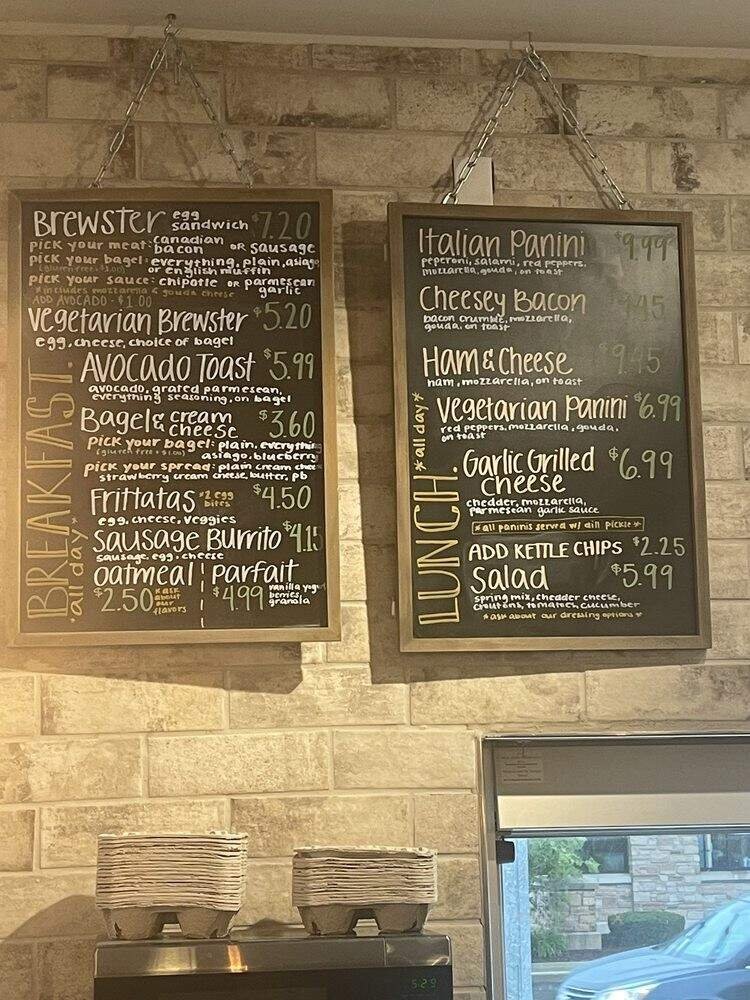 Brewster egg sandwich $7.20
pick your meat: canadian bacon or sausage
pick your bagel: everything, plain, asiago
(gluten free + $1.00) or english muffin
pick your sauce: chipotle or parmesan garlic
*includes mozzarella & gouda cheese
ADD AVOCADO - $1.00
Vegetarian Brewster $5.20
egg, cheese, choice of bagel
AVOCADO TOAST $5.99
avocado, grated parmesean,
everything seasoning, on bagel
Bagel & cream cheese $3.60
pick your bagel: plain, everything
(gluten free + $1.00) asiago, blueberry
pick your spread: plain cream chee
strawberry cream cheese, butter, pb
Frittatas *2 egg bites $4.50
egg, cheese, veggies
Sausage Burrito $4.15
sausage, egg, cheese
oatmeal
$2.50 *ask about our flavors
parfait
$4.99 vanilla yogu
berries,
granola
BREAKFAST.
*all day*
Italian Panini $9.99
peperoni, salami, red peppers,
mozzarella, gouda, on toast
Cheesey Bacon 45
bacon crumble, mozzarella,
gouda, on toast
Ham & Cheese $9.45
ham, mozzarella, on toast
Vegetarian Panini $6.99
red peppers, mozzarella, gouda,
on toast
Garlic Grilled Cheese $6.99
chedder, mozzarella,
parmesean garlic sauce
*all paninis served w/ dill pickle*
ADD KETTLE CHIPS $2.25
Salad $5.99
spring mix, chedder cheese,
croutons, tomatoes, cucumber
*ask about our dressing options*
LUNCH.
*all day*
5:29